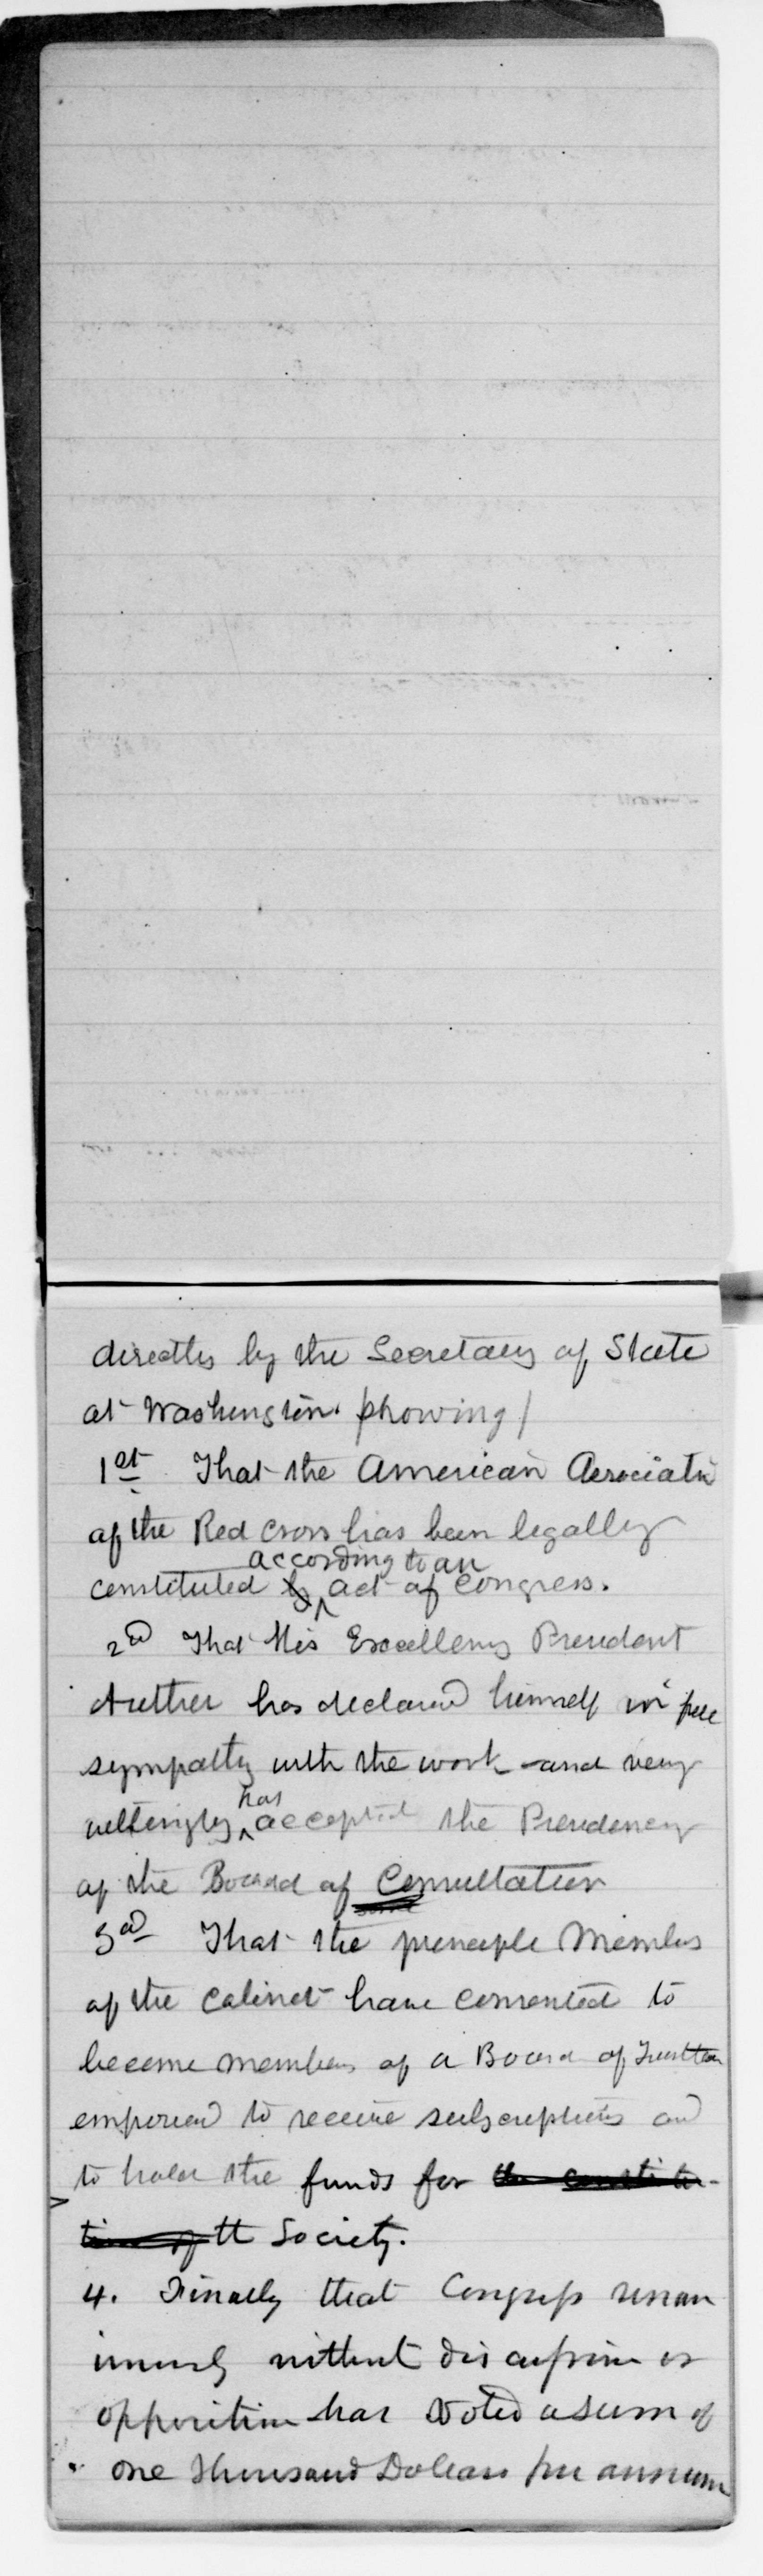 directly by the Secretary of State
at Washington. showing /
1st That the American Associatn
of the Red Cross has been legally
according to an
constituted by act of Congress.
2nd That His Excellency President
Arthur has declared himself in full
sympathy with the work and very
has
willingly accepted the Presidency
of the Board of Consultation
3d That the principle Members
of the Cabinet have consented to
become members of a Board of Trustees
empowered to receive subscriptions and
to hold the funds for the constitu-
tion of th Society.
4. Finally that Congress unan
imously without discussion or
opposition has voted a sum of
one thousand Dollars per annum